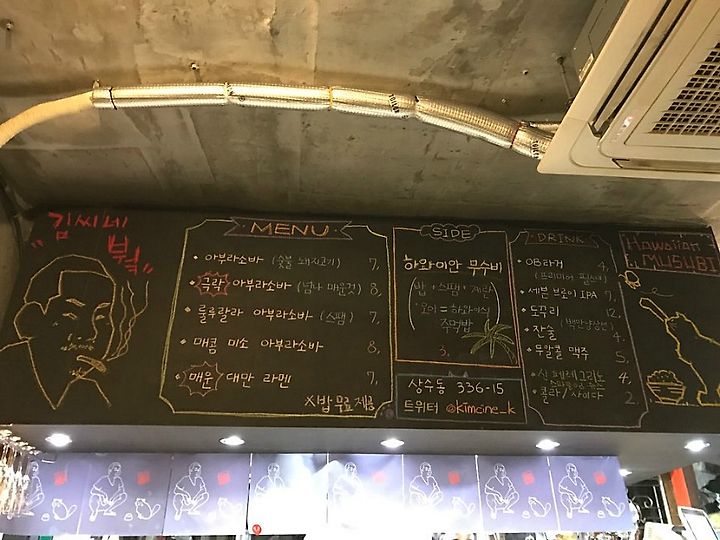 "김씨네
부엌"
MENU
• 아부라소바 (숯불 돼지고기) 7,
• 극락 아부라소바 8,
• 룰루랄라 아부라소바 (스팸) 7,
• 매콤 미소 아부라소바 8,
• 매운 대만 라멘 7,
※밥 무료 제공
SIDE
하와이안 무수비
밥 + 스팸 + 계란
주먹밥
3,
상수동 336-15
트위터 @kimcine_k
DRINK
• OB라거 4,
(프리미어 필스너)
• 세븐 브로이 IPA 7,
• 도쿠리 12,
(백만냥상인)
• 잔술 4,
• 무알콜 맥주 5,
• 산 페레그리노 4,
• 콜라 / 사이다 2,
Hawaiian
MUSUBI